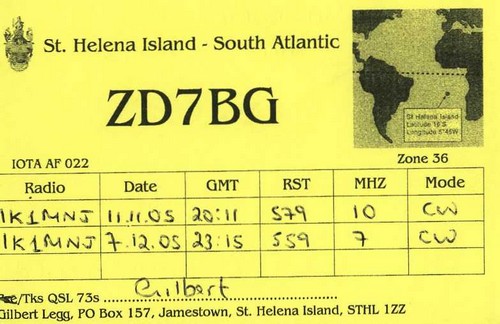 St. Helena Island - South Atlantic
ZD7BG
St Helena Island
Latitude 16°S
Longitude 5°45W
IOTA AF 022 Zone 36
Radio Date GMT RST MHZ Mode
IK1MNJ 11.11.05 20:11 579 10 CW
IK1MNJ 7.12.05 23:15 559 7 CW
/Tks QSL 73s Gilbert
Gilbert Legg, PO Box 157, Jamestown, St. Helena Island, STHL 1ZZ